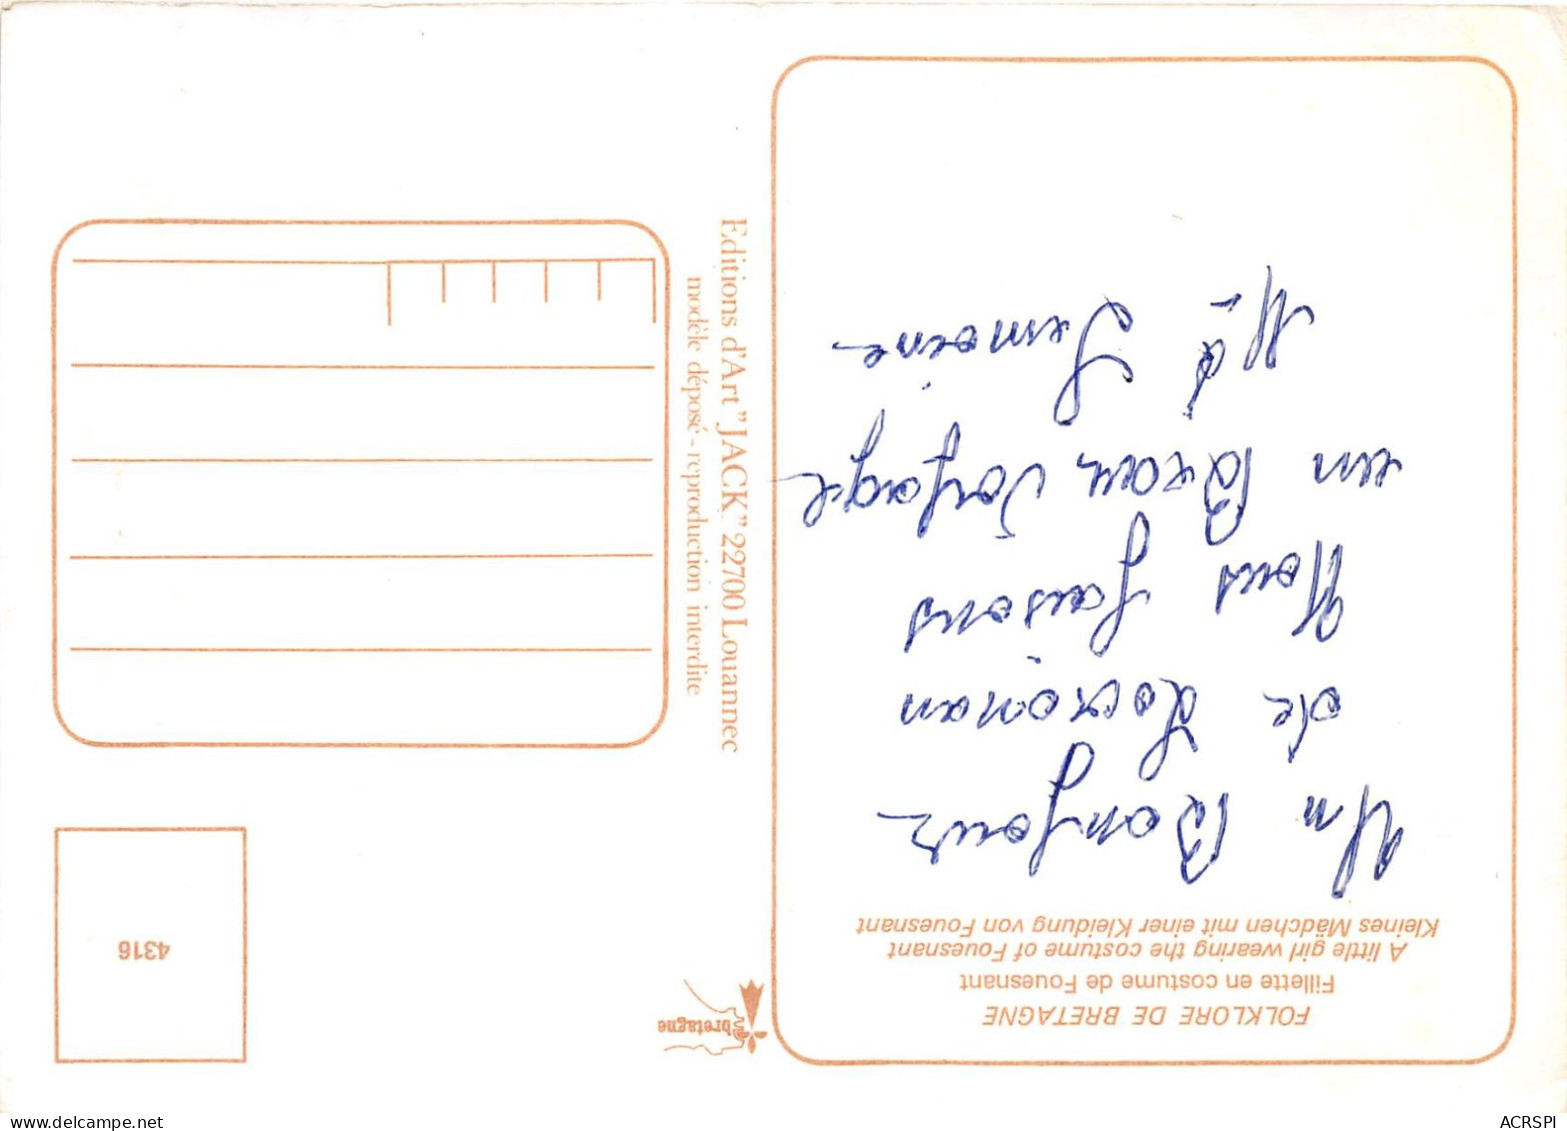 FOLKLORE DE BRETAGNE
Fillette en costume de Fouesnant
A little girl wearing the costume of Fouesnant
Kleines Mädchen mit einer Kleidung von Fouesnant
Un Bonjour
de Locronan
Nous faisons
un Beau Voyage
Lemoine
bretagne
4316
Editions d'Art "JACK" 22700 Louannec
modèle déposé - reproduction interdite
www.delcampe.net
ACRSPI